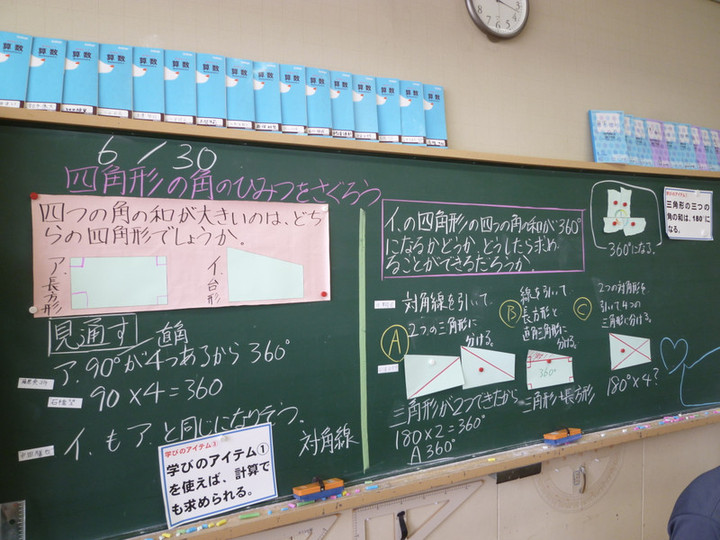 算数
6/30
四角形の角のひみつをさぐろう
四つの角の和が大きいのは、どち
らの四角形でしょうか。
ア.長方形
イ.台形
見通す
直角
ア.90°が4つあるから360°
90×4=360
イ.もア.と同じになりそう。
対角線
学びのアイテム①
を使えば、計算で
も求められる。
イ.の四角形の四つの角の和が360°
になるかどうか、どうしたら求め
ることができるだろうか。
360°になる。
学びのアイテム①
三角形の三つの
角の和は、180°に
なる。
A
対角線を引いて
2つの三角形に
分ける。
三角形が2つできたから
180×2=360°
A 360°
B
線を引いて
長方形と
直角三角形に
分ける。
360°
三角形+長方形
C
2つの対角線を
引いて4つの
三角形に分ける。
180°×4?